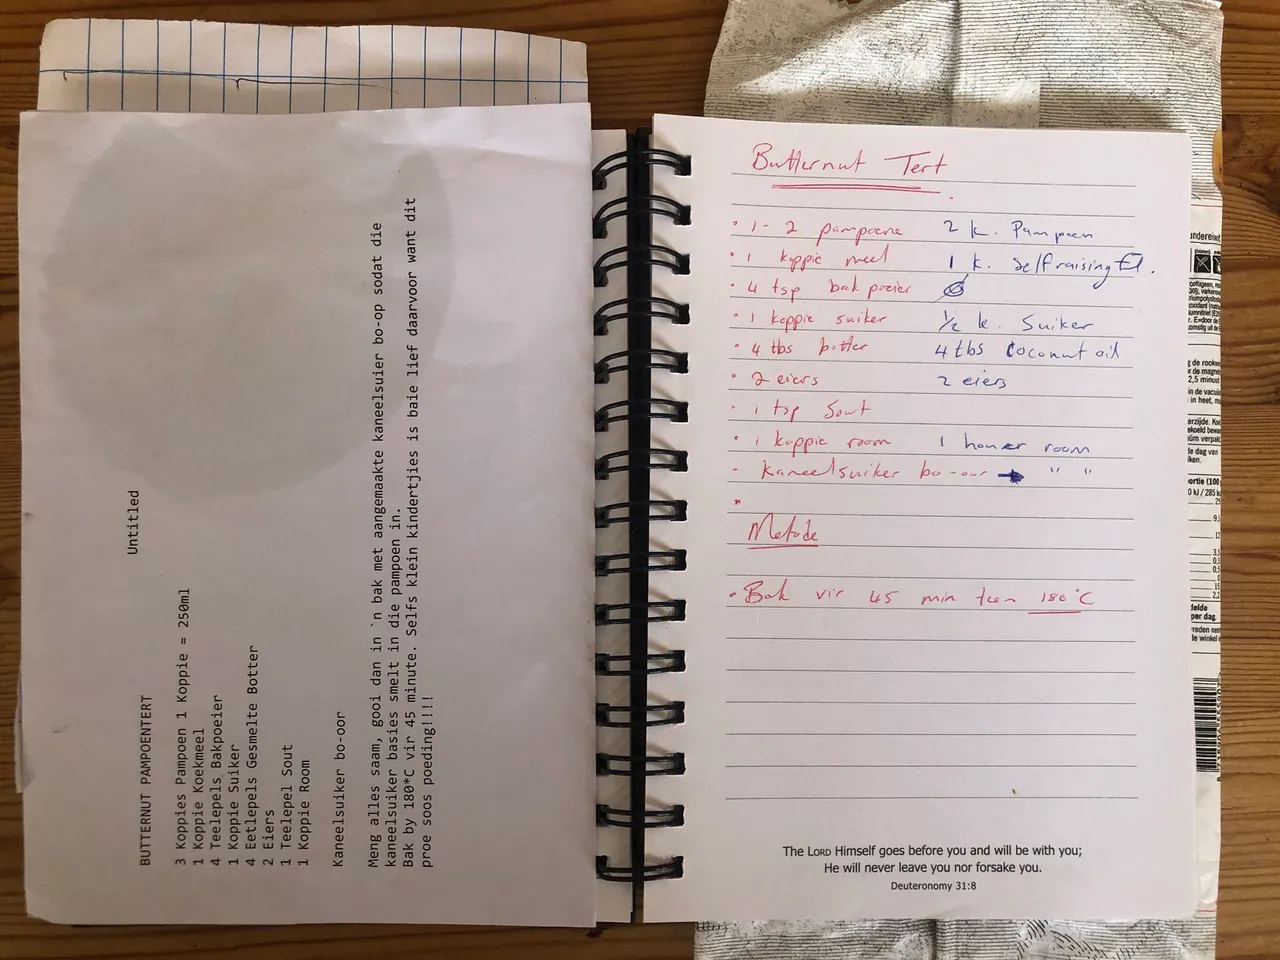 Untitled
BUTTERNUT PAMPOENTERT
3 Koppies Pampoen 1 Koppie = 250ml
1 Koppie Koekmeel
4 Teelepels Bakpoeier
1 Koppie Suiker
4 Eetlepels Gesmelte Botter
2 Eiers
1 Teelepel Sout
1 Koppie Room
Kaneelsuiker bo-oor
Meng alles saam, gooi dan in `n bak met aangemaakte kaneelsuier bo-op sodat die
kaneelsuiker basies smelt in die pampoen in.
Bak by 180*C vir 45 minute. Selfs klein kindertjies is baie lief daarvoor want dit
proe soos poeding!!!!
Butternut Tert
• 1-2 pampoene 2 k. Pampoen
• 1 koppie meel 1 k. Selfraising Fl.
• 4 tsp bak poeier
• 1 koppie suiker 1/2 k. Suiker
• 4 tbs botter 4 tbs Coconut oil
• 2 eiers 2 eiers
• 1 tsp Sout
• 1 koppie room 1 houer room
• Kaneelsuiker bo-oor → " "
•
Metode
• Bak vir 45 min teen 180°C
The LORD Himself goes before you and will be with you;
He will never leave you nor forsake you.
Deuteronomy 31:8